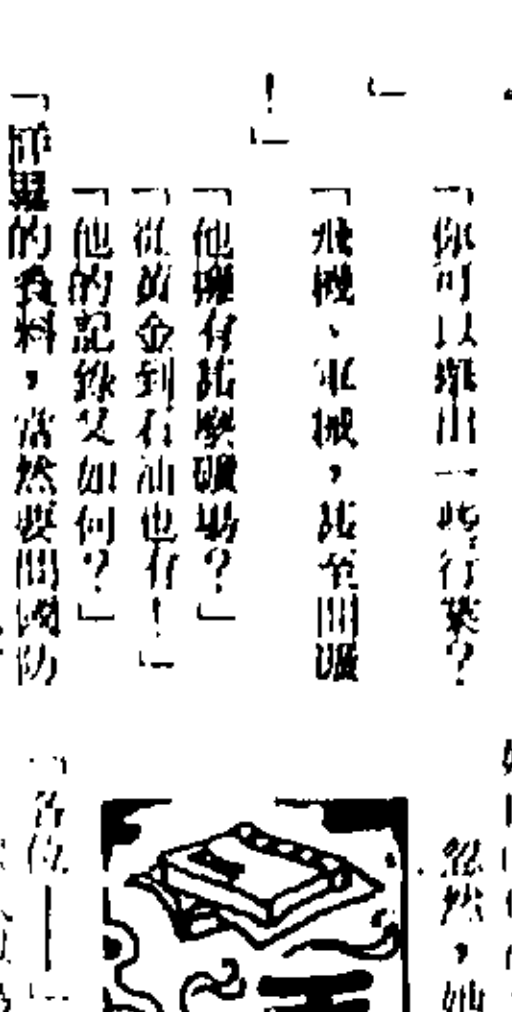 「你可以推出一些行業?
」
「飛機、軍械,甚至開礦
!」
「他擁有甚麼礦場?」
「從黃金到石油也有!」
「他的記錄又如何?」
「詳盡的資料,當然要問國防
忽然,她
「各位——